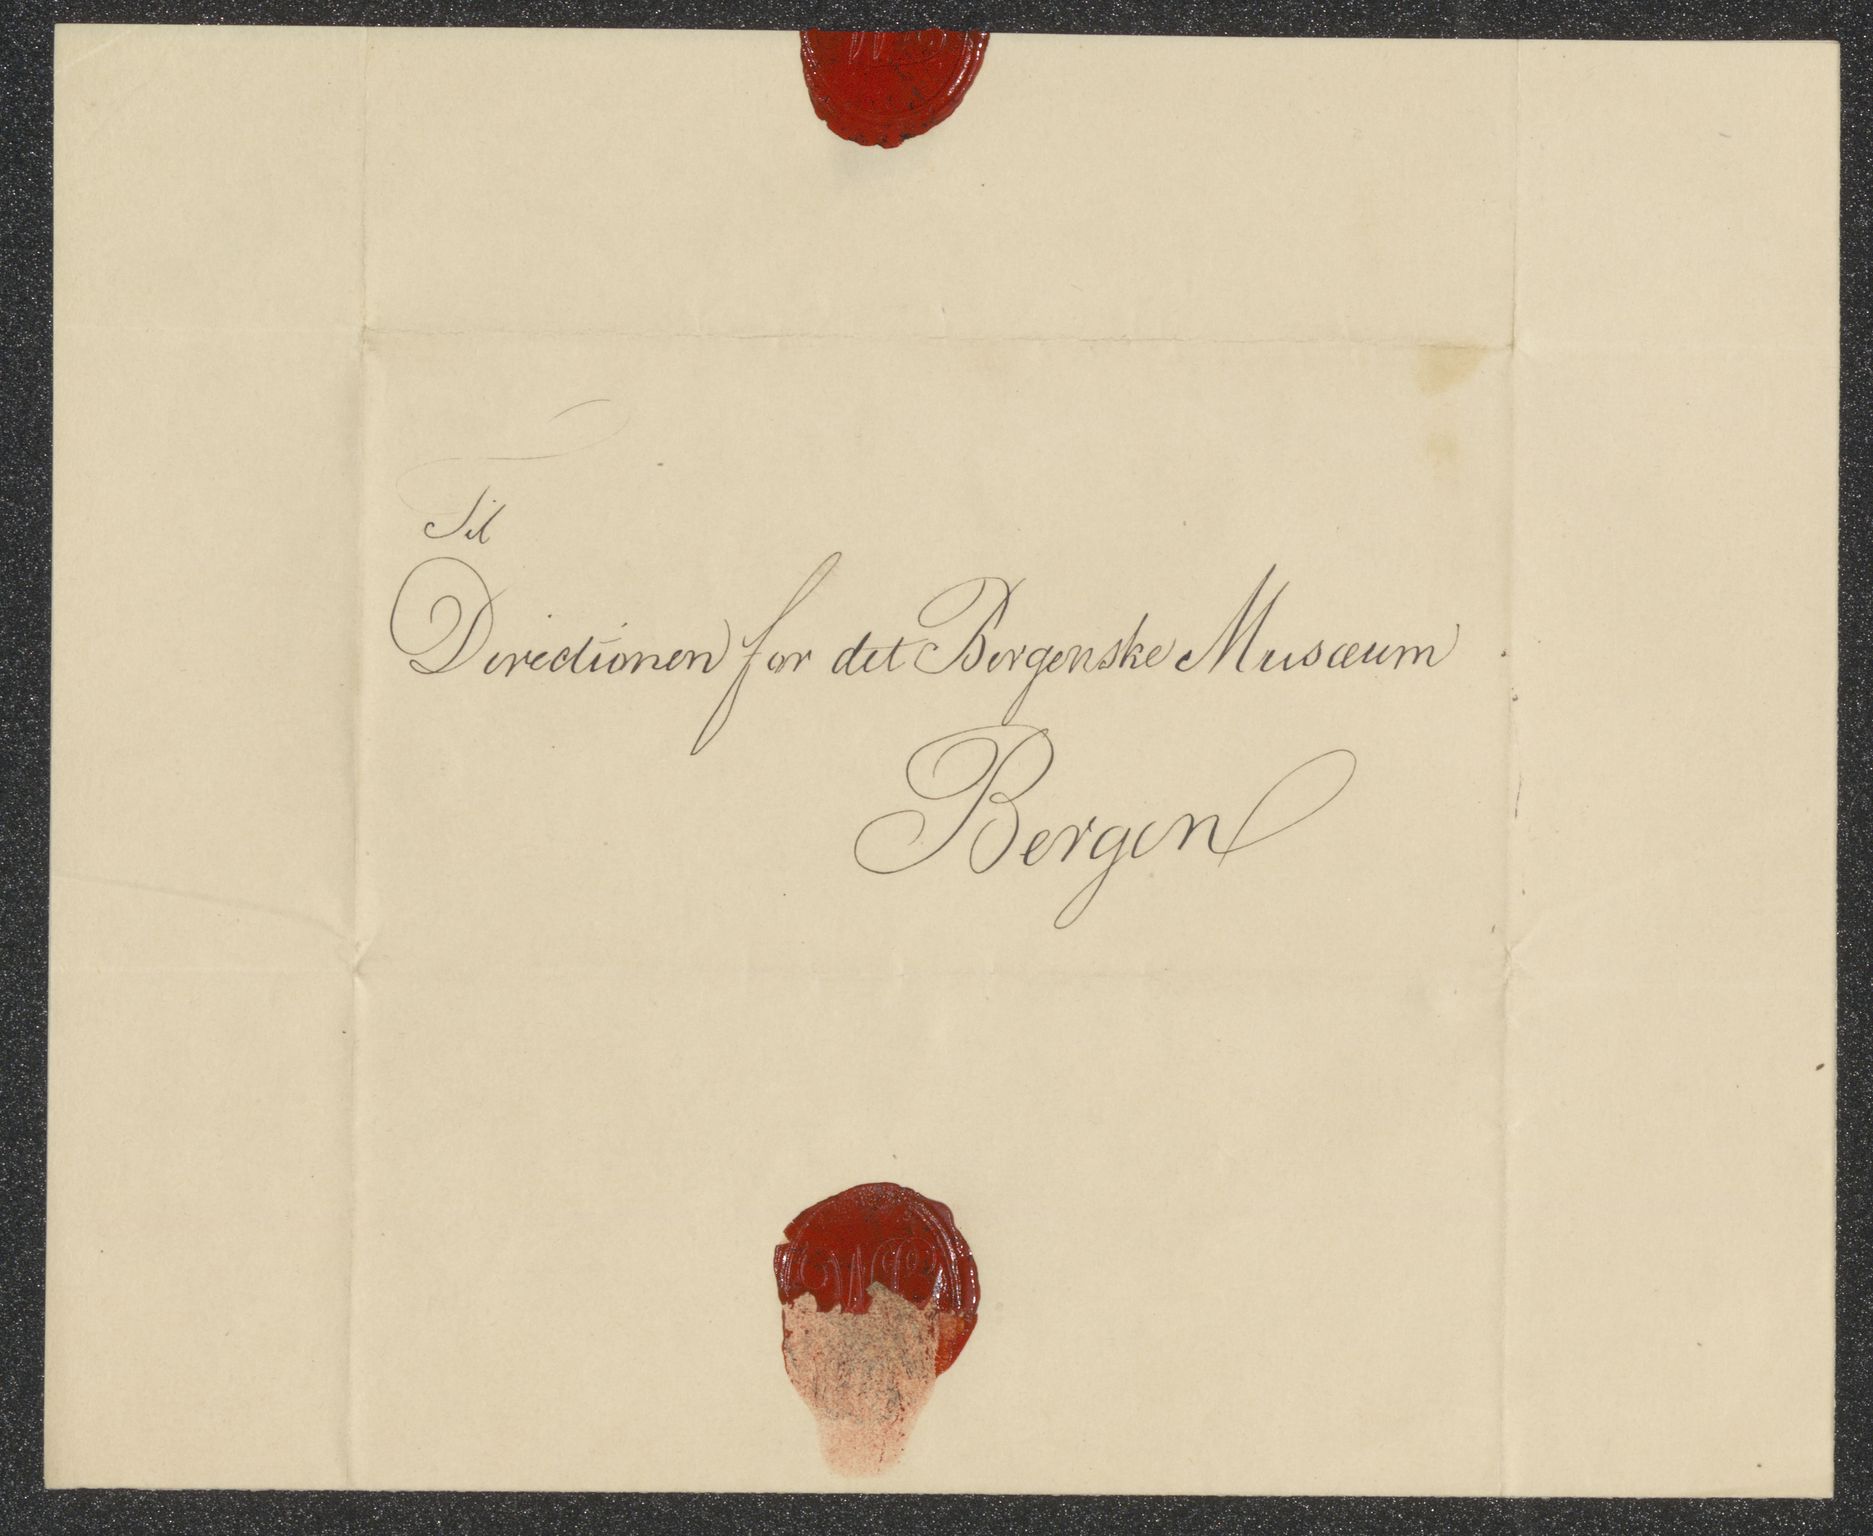 Til
Directionen for det Bergenske Musæum
Bergen